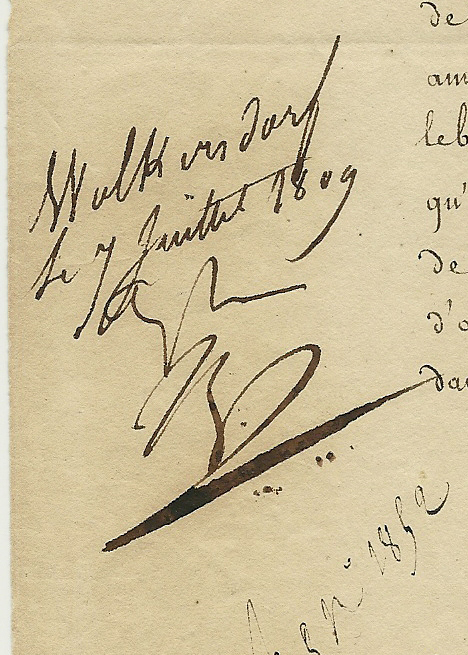 Wolkersdorf
le 7 Juillet 1809
de
am
leb
qu'
de
d'o
dan
1852